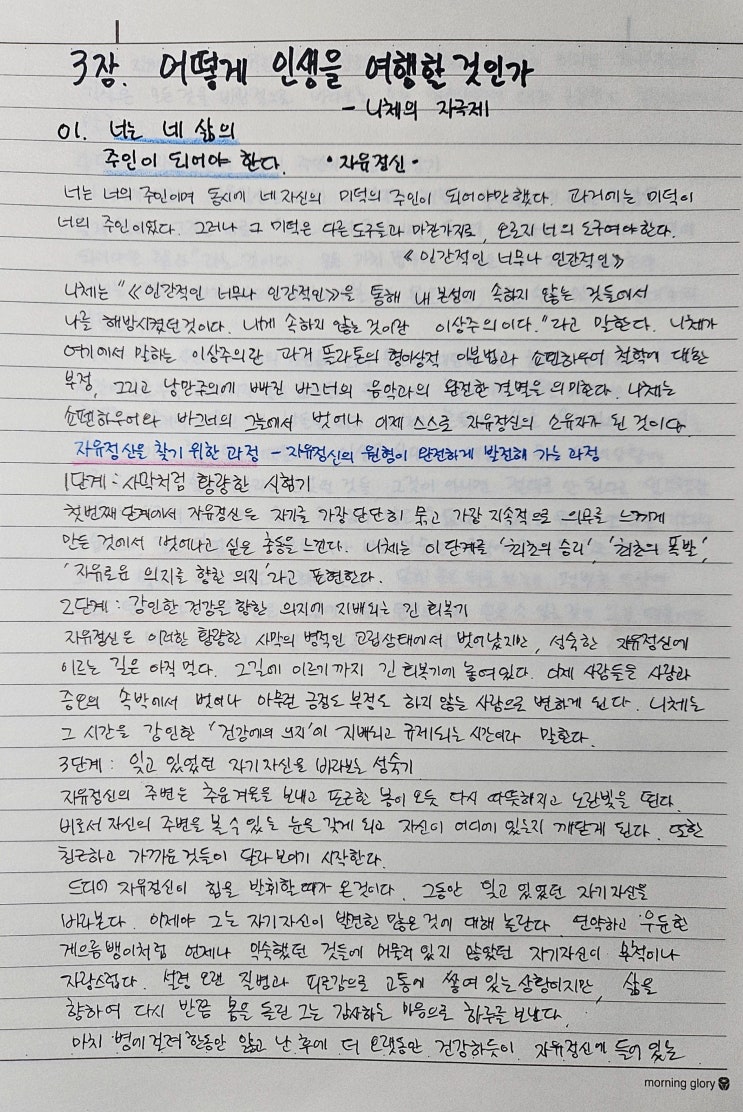 3장. 어떻게 인생을 여행할 것인가
- 니체의 자극제
01. 너는 네 삶의
주인이 되어야 한다. •자유정신•
너는 너의 주인이며 동시에 네 자신의 미덕의 주인이 되어야만 했다. 과거에는 미덕이
너의 주인이었다. 그러나 그 미덕은 다른 도구들과 마찬가지로, 오로지 너의 도구여야 한다.
《인간적인 너무나 인간적인》
니체는 "《인간적인 너무나 인간적인》을 통해 내 본성에 속하지 않는 것들에서
나를 해방시켰던 것이다. 나에게 속하지 않는 것이란 이상주의이다."라고 말한다. 니체가
여기에서 말하는 이상주의란 과거 플라톤의 형이상적 이분법과 쇼펜하우어 철학에 대한
부정, 그리고 낭만주의에 빠진 바그너의 음악과의 완전한 결별을 의미한다. 니체는
쇼펜하우어와 바그너의 그늘에서 벗어나 이제 스스로 자유정신의 소유자가 된 것이다.
자유정신을 찾기 위한 과정 - 자유정신의 원형이 완전하게 발전해 가는 과정
1단계 : 사막처럼 황량한 시험기
첫번째 단계에서 자유정신은 자기를 가장 단단히 묶고 가장 지속적으로 의무를 느끼게
만든 것에서 벗어나고 싶은 충동을 느낀다. 니체는 이 단계를 '최초의 승리', '최초의 폭발',
'자유로운 의지를 향한 의지'라고 표현한다.
2단계 : 강인한 건강을 향한 의지에 지배되는 긴 회복기
자유정신은 이러한 황량한 사막의 병적인 고립상태에서 벗어났지만, 성숙한 자유정신에
이르는 길은 아직 멀다. 그길에 이르기까지 긴 회복기에 놓여있다. 이제 사람들을 사랑과
증오의 속박에서 벗어나 아무런 긍정도 부정도 하지 않는 사람으로 변하게 된다. 니체는
그 시간을 강인한 '건강에의 의지'에 지배되고 규제되는 시간이라 말한다.
3단계 : 잊고 있었던 자기자신을 바라보는 성숙기
자유정신의 주변은 추운겨울을 보내고 포근한 봄이 오듯 다시 따뜻해지고 노란빛을 띤다.
비로서 자신의 주변을 볼 수 있는 눈을 갖게 되고 자신이 어디에 있는지 깨닫게 된다. 또한
친근하고 가까운 것들이 달라 보이기 시작한다.
드디어 자유정신이 힘을 발휘할 때가 온것이다. 그동안 잊고 있었던 자기자신을
바라본다. 이제야 그는 자기자신이 발견한 많은 것에 대해 놀란다. 연약하고 우둔한
게으름뱅이처럼 언제나 익숙했던 것들에 머물러 있지 않았던 자기자신이 무척이나
자랑스럽다. 설령 오랜 질병과 피로감으로 고통에 쌓여 있는 상황이지만, 삶을
향하여 다시 반쯤 몸을 돌린 그는 감사하는 마음으로 하루를 보낸다.
마치 병에 걸려 한동안 앓고 난 후에 더 오랫동안 건강하듯이 자유정신에 들어 있는
morning glory